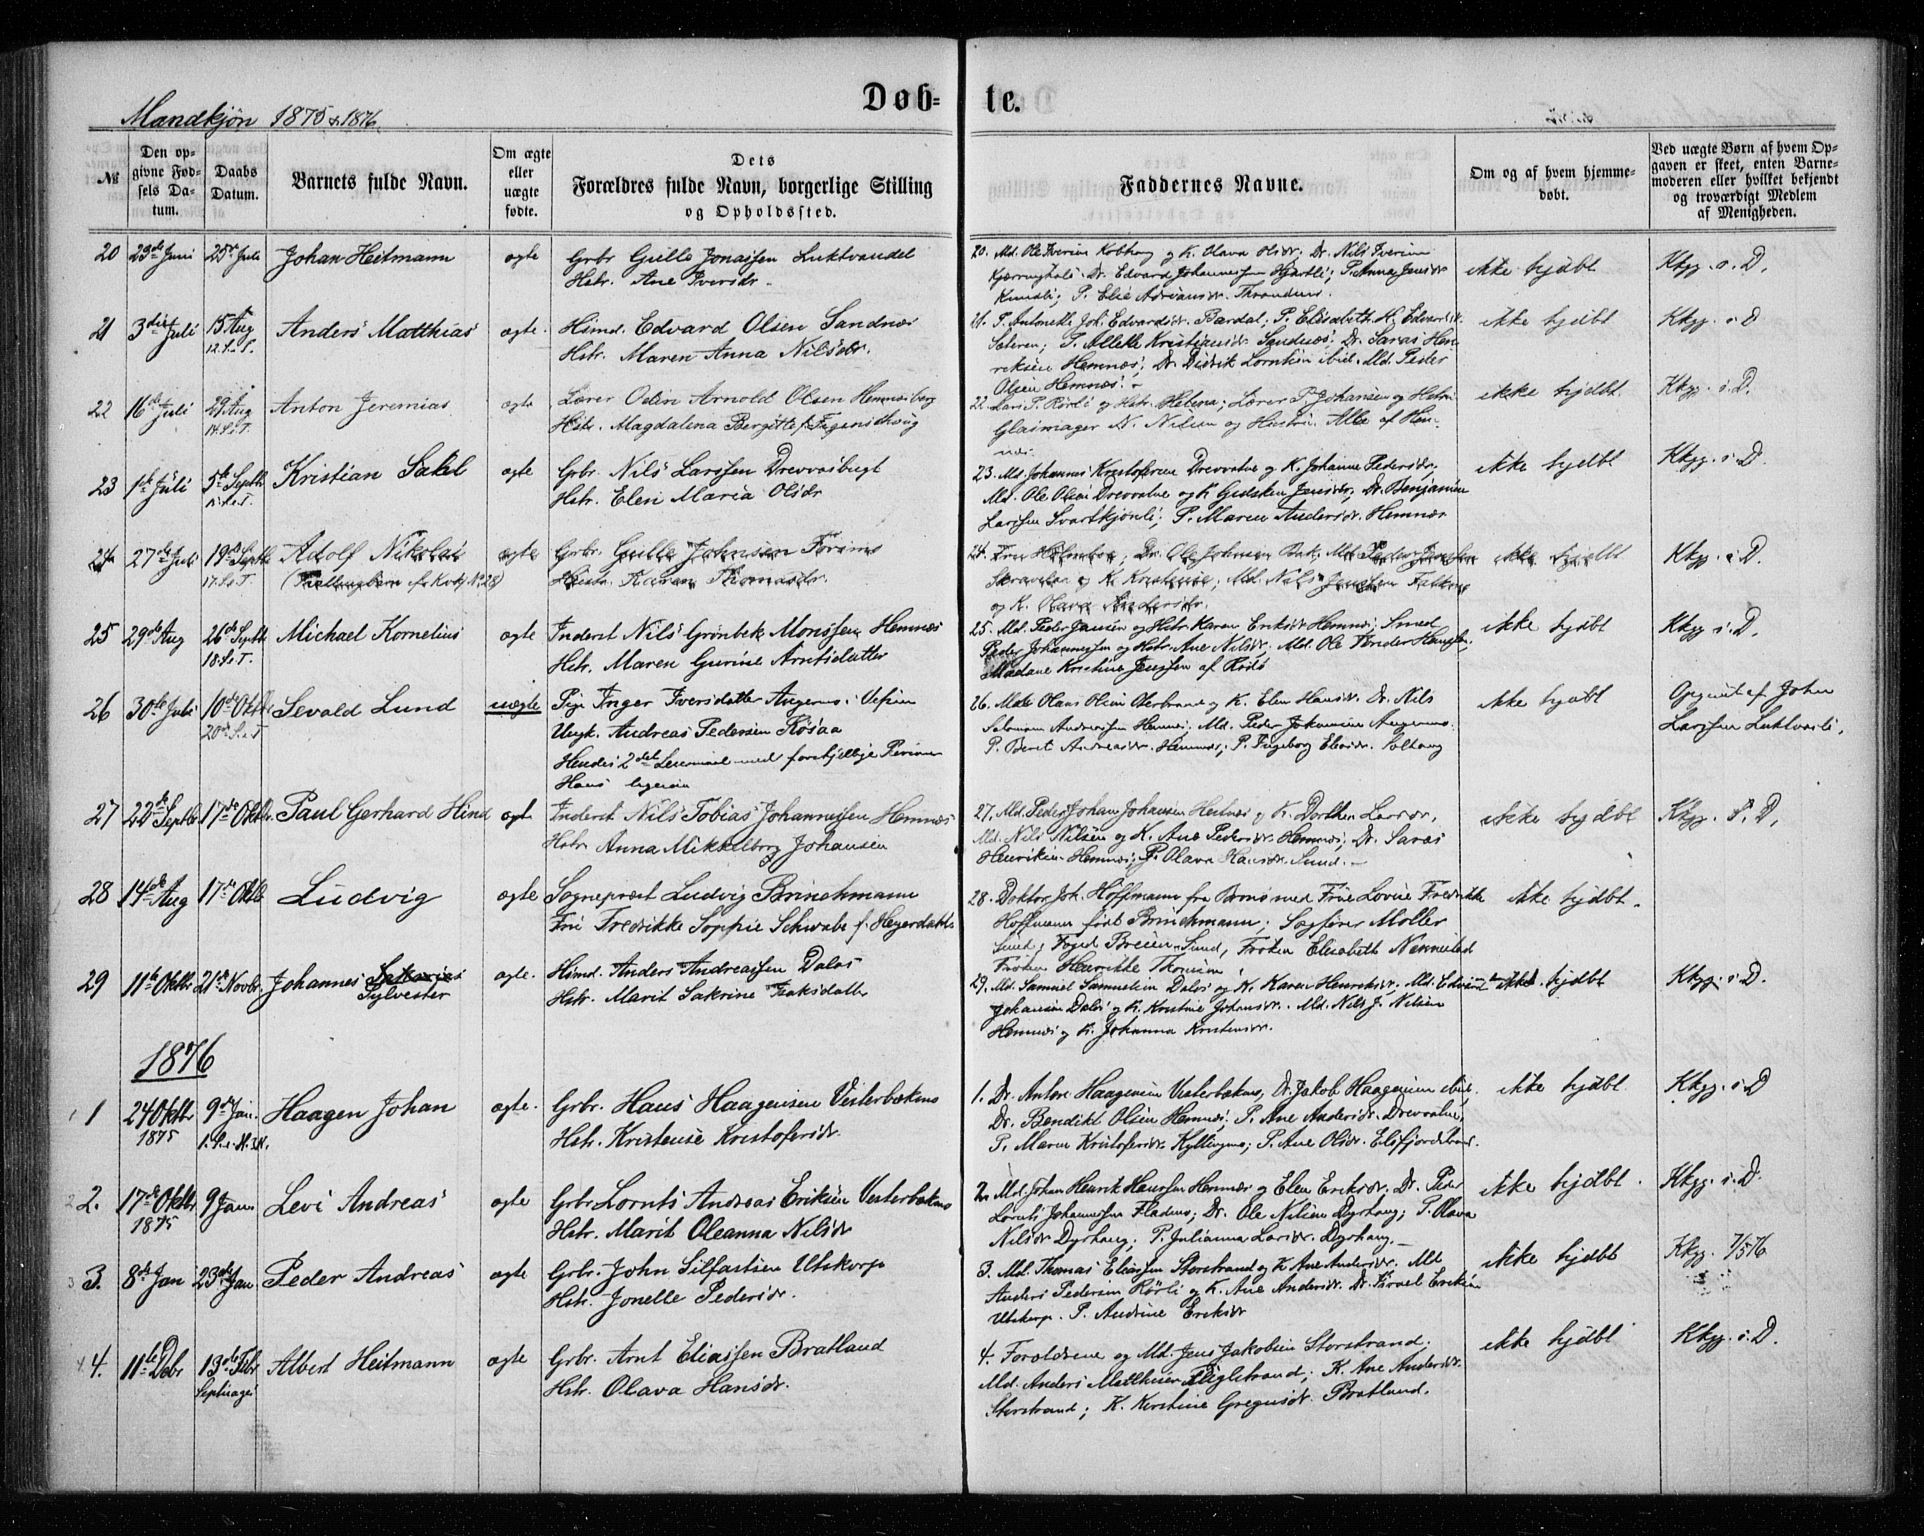 Døb- te.
Mandkjøn 1875 & 1876.
№
Den opgivne Fødsels Datum.
Daabs Datum.
Barnets fulde Navn.
Om ægte eller uægte fødte.
Dets Forældres fulde Navn, borgerlige Stilling og Opholdssted.
Faddernes Navne.
Om og af hvem hjemmedøbt.
Ved uægte Børn af hvem Opgaven er skeet, enten Barnemoderen eller hvilket bekjendt og troværdigt Medlem af Menigheden.
20 23de Juni 25de Juli Johan Heitmann ægte Grbr Gulle Jonassen Luktvandet
Hstr. Ane Iversdr.
20. Md. Ole Iversen og K. Olava Olsdr. Dr. Nils Iversen
Dr. Edvard Johannessen P. Anna Jensdr
P. Elie Adriansdr.
ikke hjdbt Kkgg. o. D.
21 3die Juli 15 Aug Anders Matthias ægte. Hsmd. Edvard Olsen Sandnes
12. S. e. T. Hstr. Maren Anna Nilsdr.
21. P. Antonette Joh. Edvardsdr. Bardal; P. Elisabeth H. Edvardsdr.
P. Allette Kristiansdr Sandnæs; Dr. Saras Henriksen Hemnæs; Dr. Didrik Lorntsen ibid. Md. Peder
Olsen Hemnæs.
ikke hjdbt Kkgg. o. D
22 16de Juli 29 Aug Anton Jeremias ægte Lærer Odin Arnold Olsen Hemnæsberg
14. S. e. T. Hstr. Magdalena Bergitte f.
22. Lars P. Rørli og Hstr. Helena; Lærer P. Johansen og Hstr.
Glasmager N. Nilsen og Hustru. Alle af Hemnæs.
ikke hjdbt. Kkgg. o. D.
23 1ste Juli 5te Septbr Kristian Sakel ægte Grbr. Nils Larssen Drevvasbugt
15. S. e. T. Hstr. Elen Maria Olsdr
23. Md. Johannes Kristofersen Drevvatne og K. Johanna Pedersdr,
Md. Ole Olsen Drevvatne og K. Jensdr; Dr. Benjamin
Larssen Svartkjønli; P. Maren Andersdr. Hemnæs
ikke hjdbt Kkgg. o. D.
24 27de Juli 19de Septbr Adolf Nikolai ægte Grbr. Gulle Johnsen
17. S. e. T. (Tvillingbarn cfr Kvkj. Nr. 28) Hstr. Karen Thomasdr.
24. Fru Holmboe; Dr. Ole Johnsen Md. Peder
og K. Md. Nils
og K. Olava Andersdr.
ikke hjdbt Kkgg. o. D.
25 29de Aug 26de Septbr Michael Kornelius ægte Inderst Nils Grønbek Monssen Hemnæs
18. S. e. T. Hstr. Maren Gurine Arntsdatter
25. Md. Peder Jansen og Hstr. Karen Eriksdr Hemnæs; Smed
Peder Johannessen og Hstr. Ane Nilsdr, Md. Ole
Madame Kristine Jenssen af Rødø
ikke hjdbt Kkgg. o. D.
26 30te Juli 10de Oktbr Sevald Lund uægte Pige Inger Iversdatter Angermo i Vefsen
20de S. e. T Ungk. Andreas Pedersen Røsaa
Hendes 2det Leiermaal med forskjellige Personer
Hans
26. K. Elen Hansdr. Dr. Nils
Salomon Andreassen Hemnæs, Md. Peder Johannesen Angermo
P. Beret Andreasdr. Hemnæs; P. Ingeborg
ikke hjdbt Opgivet af John
Larssen Luktvasli.
27 22de Septbr 17de Oktbr. Paul Gerhard Hind ægte Inderst Nils Tobias Johannessen Hemnæs
Hstr. Anna Mikkelborg Johansen
27. Md. Peder Johan Johansen Hestnes og K. Dorthea Larsdr,
Md. Nils Nilsen og K. Ane Pedersdr. Hemnæs, Dr. Saras
Henriksen Hemnæs; P. Olava Hansdr. Sund.
ikke hjdbt Kkgg. o. D.
28 14de Aug 17de Oktbr Ludvig ægte Sognepræst Ludvig Brinchmann
Fru Fredrikke Sophie Schwabe f. Heyerdahl
28. Doktor Joh. Hoffmann fra Brønø med Frue Lovise Fredrikke
Hoffmann født Brinchmann; Sagfører Møller
Sund; Foged Breien Sund, Frøken Elisabeth
Frøken Henrikke
ikke hjdbt.
29 11te Oktbr 21de Novbr. Johannes Sakarias ægte. Hsmd. Anders Andreassen Dalos
Sylvester Hstr. Marit Sakrine Isaksdatter
29. Md. Samuel Samuelsen Dalos og K. Karen Henriksdr, Md. Edvard
Johansen Dalos og K. Kristine Johansdr. Md. Nils J. Nilsen
Hemnæs og K. Johanna Kristensdr.
ikke hjdbt Kkgg. o. D.
1876
1 24 Oktbr 9de Jan. Haagen Johan ægte. Grbr. Hans Haagensen Vesterbækmo
1875 1. S. e. H. 3 K. Hstr. Kristense Kristofersdr
1. Dr. Anton Haagensen Vesterbækmo, Dr. Jakob Haagensen ibid.
Dr. Bendikt Olsen Hemnæs; P. Ane Andersdr. Drevvatne,
P. Maren Kristofersdr. Kyllingmo; P. Ane Olsdr. Elsfjordstrand.
ikke hjdbt Kkgg. o. D
2. 17de Oktbr 9 Jan. Levi Andreas ægte Grbr. Lornts Andreas Eriksen Vesterbækmo
1875 Hstr. Marit Oleanna Nilsdr
2. Md. Johan Henrik Hanssen Hemnæs og Elen Eriksdr. Dr. Peder
Lornts Johannessen Fladmo; Dr. Ole Nilsen Dyrhaug; P. Olava
Nilsdr Dyrhaug; P. Julianna Larsdr. Dyrhaug.
ikke hjdbt. Kkgg. o. D.
3. 8de Jan 23de Jan. Peder Andreas ægte Grbr. John Silfastsen Utskarp
Hstr. Jonelle Pedersdr.
3. Md. Thomas Eliassen Storstrand og K. Ane Andersdr. Md
Anders Pedersen Rørli og K. Ane Andersdr. Dr. Israel Eriksen
Utskarp. P. Andrine Eriksdr
ikke hjdbt Kkgg. 7/5 76
4. 11te Debr 13de Febr Albert Heitmann ægte Grbr. Arnt Eliassen Bratland
Septuages Hstr. Olava Hansdr.
4. Forældrene og Md. Jens Jakobsen Storstrand,
Md. Anders Matthisen K. Ane Andersdr.
Storstrand; K. Kerstine Gregusdr. Bratland.
ikke hjdbt Kkgg. o. D.